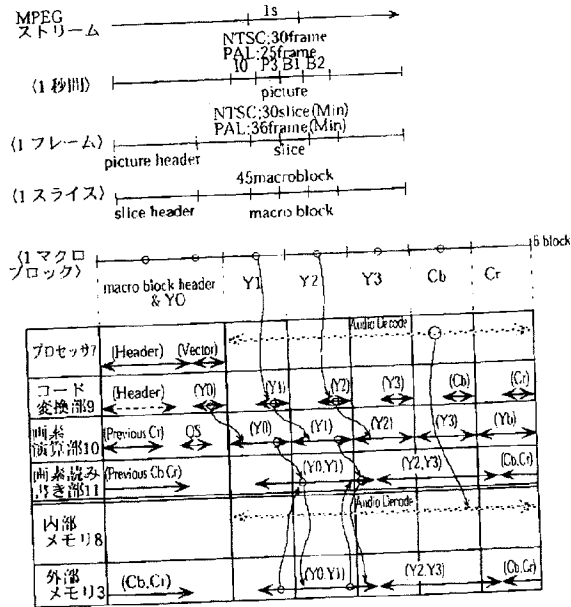 MPEG
ストリーム
1s
NTSC:30frame
PAL:25frame
I0 P3 B1 B2
(1 秒間)
picture
NTSC:30slice(Min)
PAL:36frame(Min)
(1 フレーム)
picture header
slice
45macroblock
(1 スライス)
slice header
macro block
(1 マクロ
ブロック)
6 block
macro block header
& Y0
Y1
Y2
Y3
Cb
Cr
プロセッサ7
(Header)
(Vector)
Audio Decode
コード
変換部9
(Header)
(Y0)
(Y1)
(Y2)
(Y3)
(Cb)
(Cr)
画素
演算部10
(Previous Cr)
QS
(Y0)
(Y1)
(Y2)
(Y3)
(Yb)
画素読み
書き部11
(Previous Cb Cr)
(Y0,Y1)
(Y2,Y3)
(Cb,Cr)
内部
メモリ8
Audio Decode
外部
メモリ3
(Cb,Cr)
(Y0,Y1)
(Y2,Y3)
(Cb,Cr)